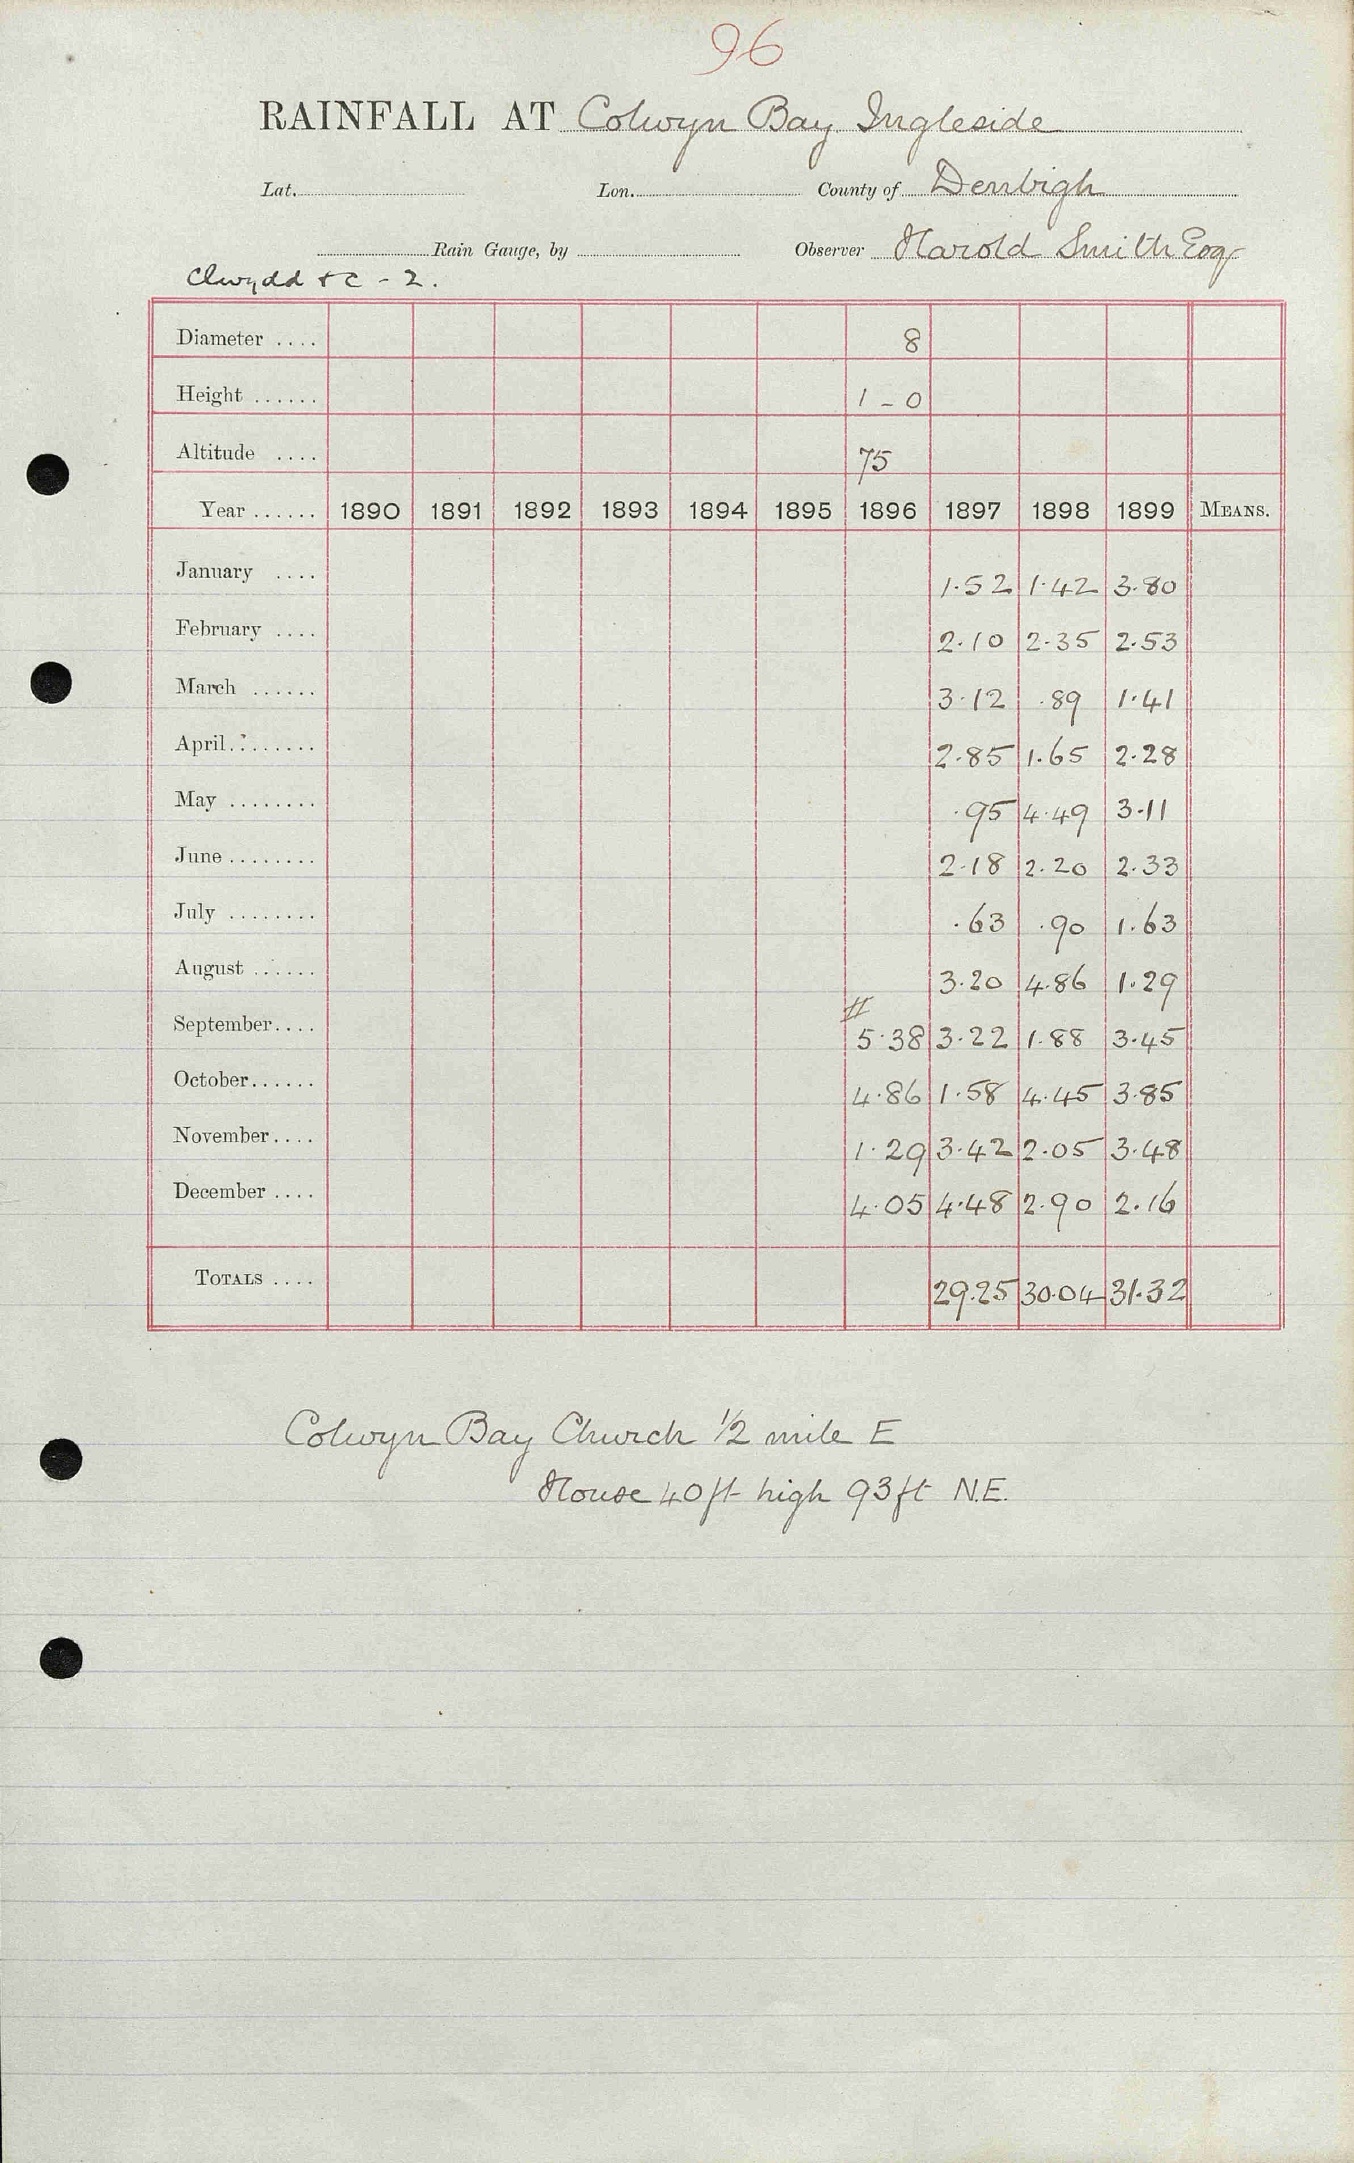 96
RAINFALL AT Colwyn Bay Ingleside
Lat. Lon. County of Denbigh
Rain Gauge, by Observer Harold Smith Esq
Clwydd &c - 2.
Diameter .... 8
Height ...... 1 - 0
Altitude .... 75
Year ...... 1890 1891 1892 1893 1894 1895 1896 1897 1898 1899 MEANS.
January .... 1.52 1.42 3.80
February .... 2.10 2.35 2.53
March ...... 3.12 .89 1.41
April........ 2.85 1.65 2.28
May ........ .95 4.49 3.11
June ........ 2.18 2.20 2.33
July ........ .63 .90 1.63
August ...... 3.20 4.86 1.29
September.... 5.38 3.22 1.88 3.45
October...... 4.86 1.58 4.45 3.85
November.... 1.29 3.42 2.05 3.48
December .... 4.05 4.48 2.90 2.16
TOTALS .... 29.25 30.04 31.32
Colwyn Bay Church 1/2 mile E
House 40ft high 93ft N.E.